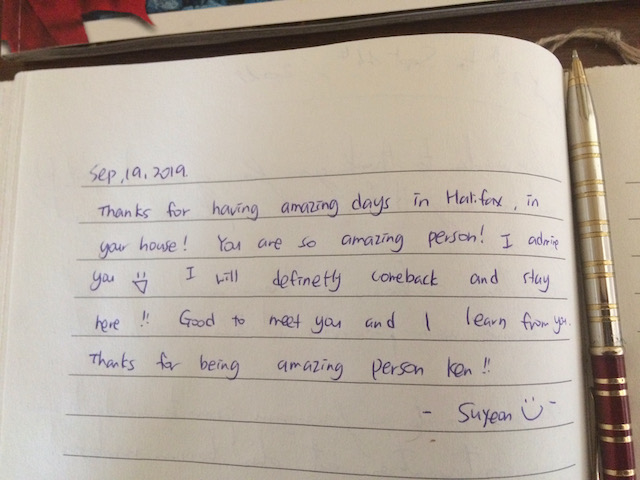 Sep, 19, 2019.
Thanks for having amazing days in Halifax, in
your house! You are so amazing person! I admire
you I will definetly comeback and stay
here !! Good to meet you and I learn from you.
Thanks for being amazing person Ken !!
- Suyeon -